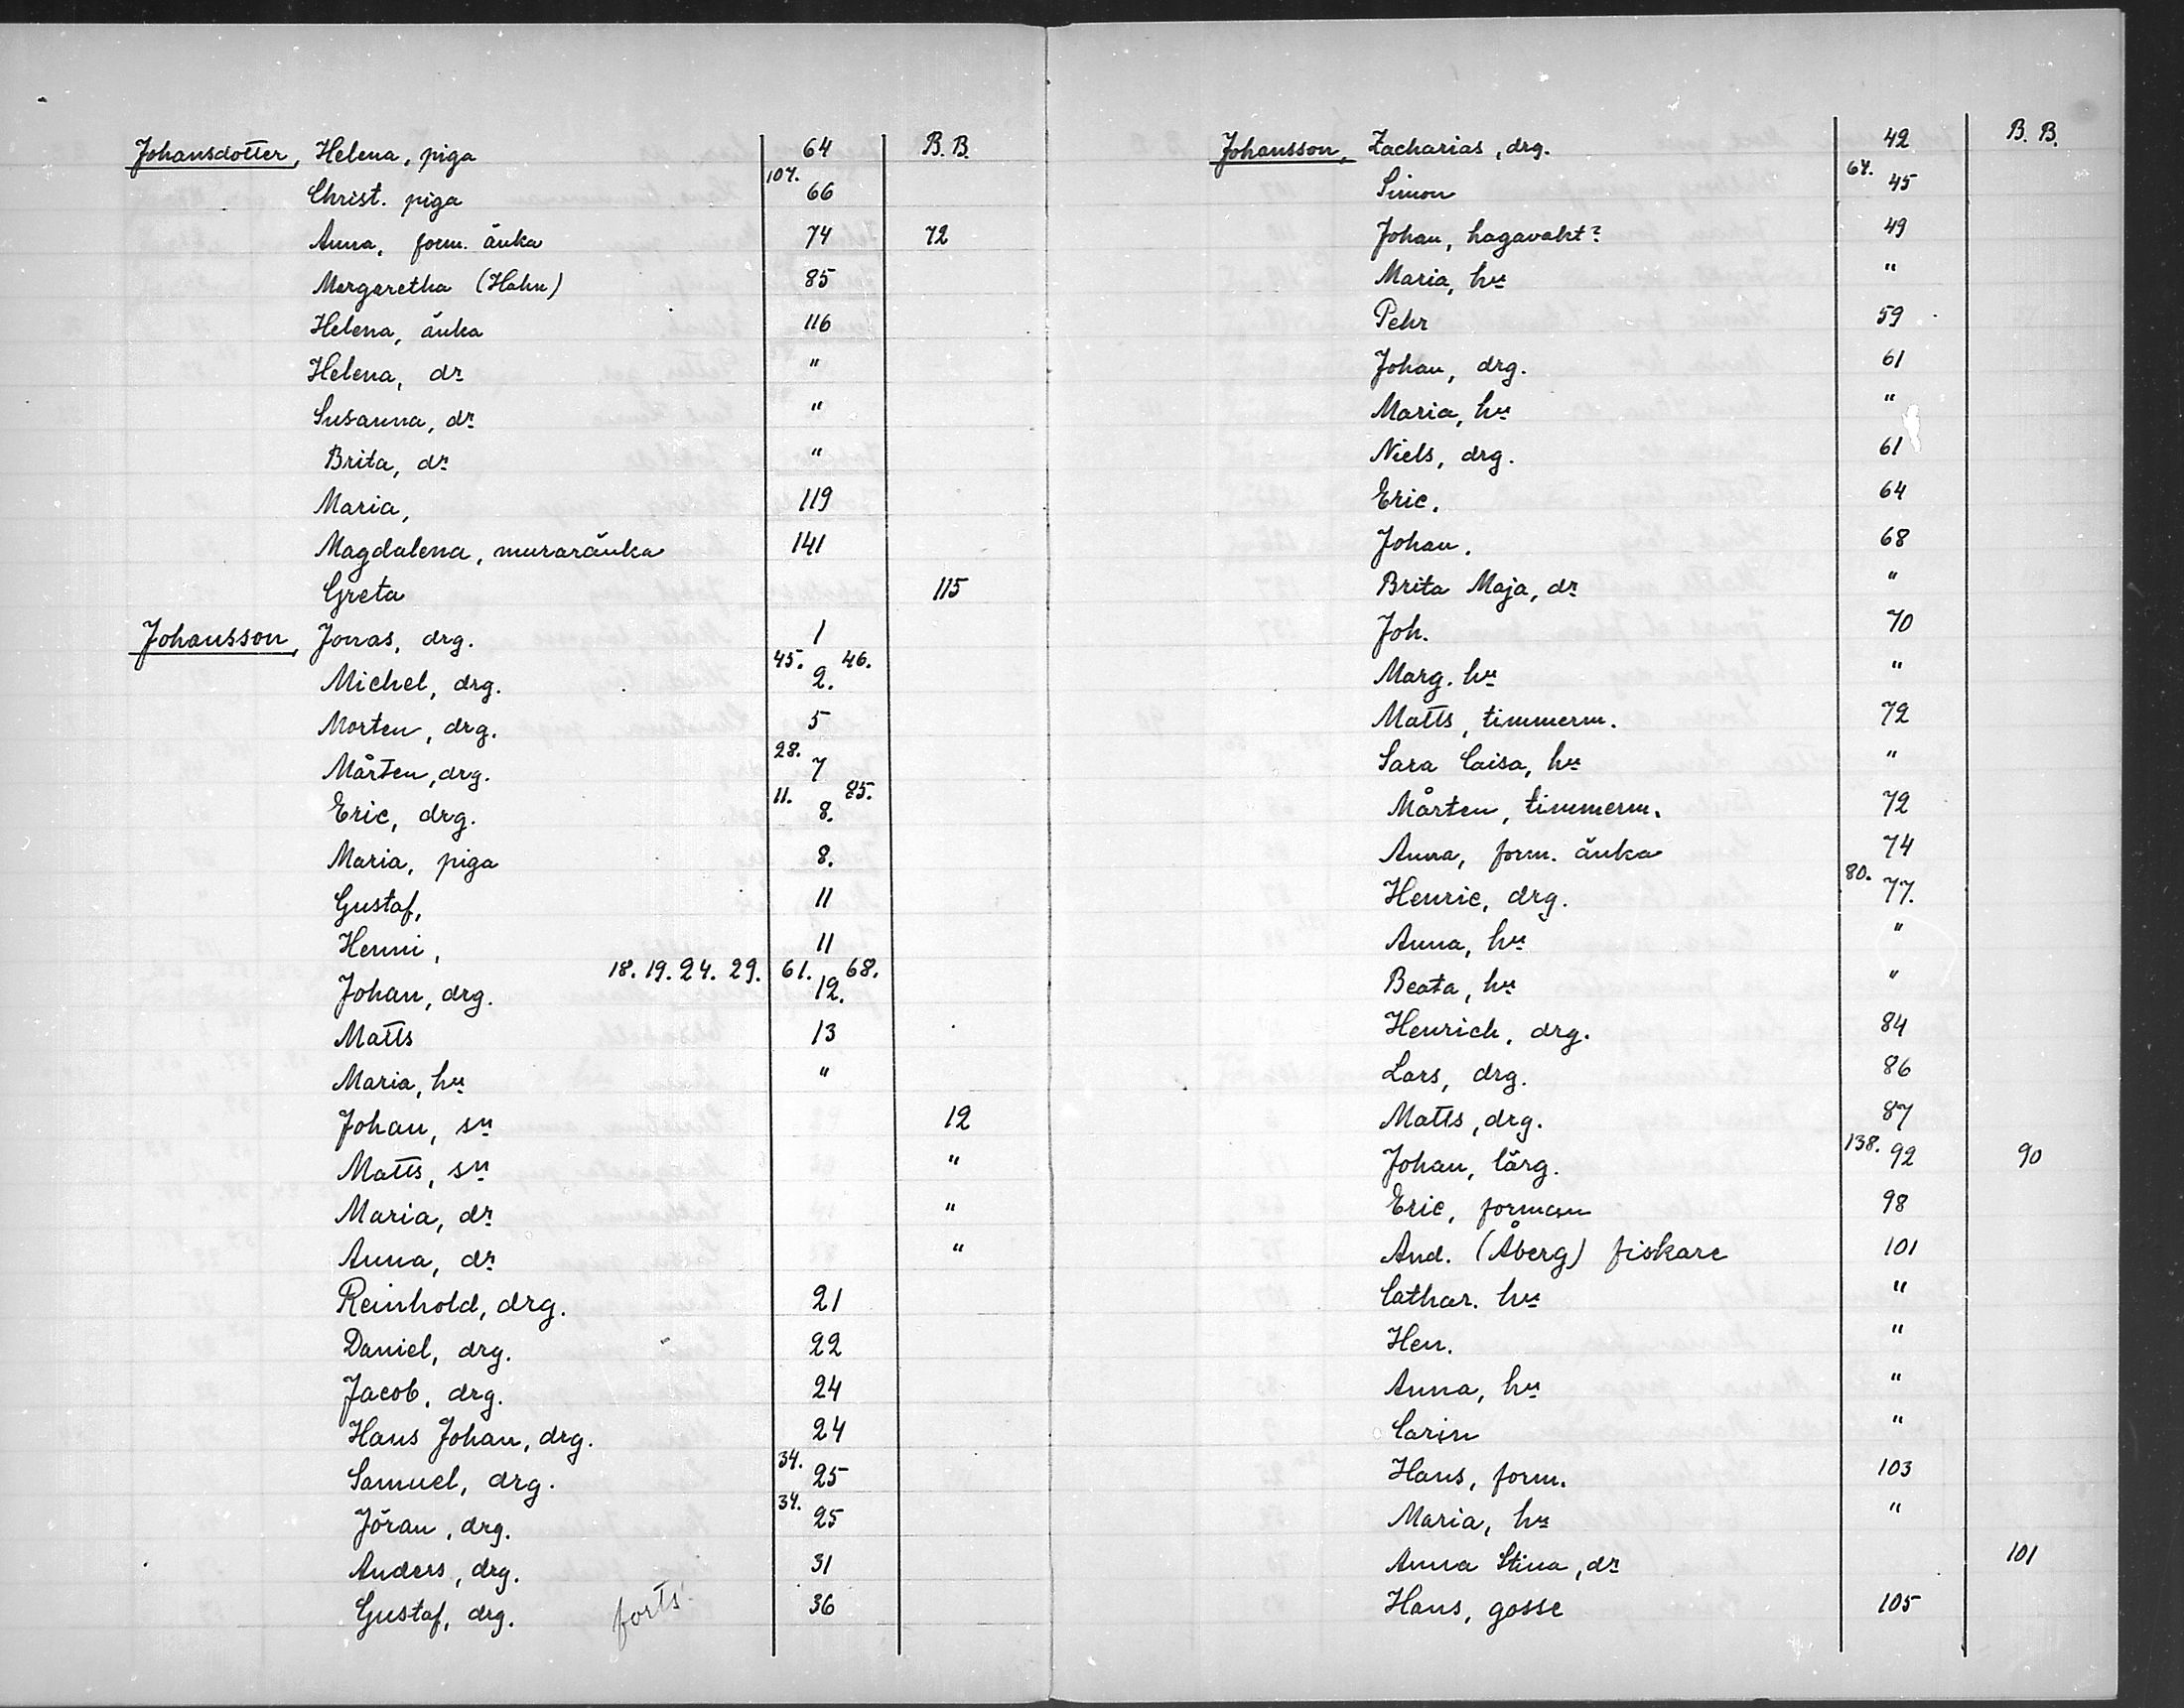 Johansdotter, Helena, piga 64 B.B.
Christ. piga 107. 66
Anna, form. änka 74 72
Margaretha (Hahn) 85
Helena, änka 116
Helena, dr "
Susanna, dr "
Brita, dr "
Maria, 119
Magdalena, muraränka 141
Greta 115
Johansson, Jonas, drg. 1
Michel, drg. 45. 2. 46.
Morten, drg. 5
Mårten, drg. 28. 7
Eric, drg. 11. 8. 85.
Maria, piga 8.
Gustaf, 11
Henni, 11
Johan, drg. 18. 19. 24. 29. 61. 12. 68.
Matts 13
Maria, hu "
Johan, sn 12
Matts, sn "
Maria, dr "
Anna, dr "
Reinhold, drg. 21
Daniel, drg. 22
Jacob, drg. 24
Hans Johan, drg. 24
Samuel, drg. 34. 25
Jöran, drg. 34. 25
Anders, drg. 31
Gustaf, drg. forts. 36
Johansson, Zacharias, drg. 42 B.B.
Simon 64. 45
Johan, hagavakt? 49
Maria, hu "
Pehr 59
Johan, drg. 61
Maria, hu "
Niels, drg. 61
Eric. 64
Johan. 68
Brita Maja, dr "
Joh. 70
Marg. hu "
Matts, timmerm. 72
Sara Caisa, hu "
Mårten, timmerm. 72
Anna, form. änka 74
Henric, drg. 80. 77.
Anna, hu "
Beata, hu "
Henrich, drg. 84
Lars, drg. 86
Matts, drg. 87
Johan, lärg. 138. 92 90
Eric, forman 98
And. (Åberg) fiskare 101
Cathar. hu "
Hen. "
Anna, hu "
Carin "
Hans, form. 103
Maria, hu "
Anna Stina, dr 101
Hans, gosse 105